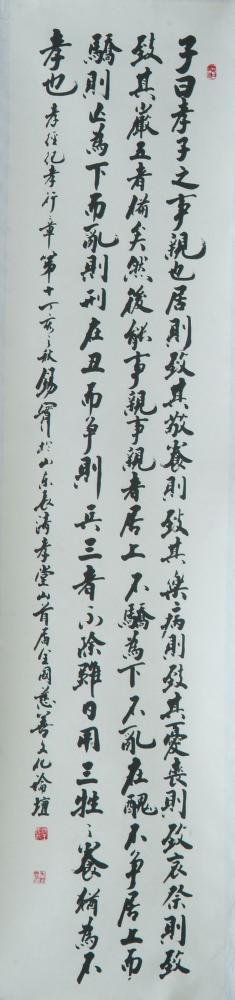 子曰孝子之事親也居則致其敬養則致其樂病則致其憂喪則致哀祭則致
致其嚴五者備矣然後能事親事親者居上不驕為下不乱在醜不争居上而
驕則亡為下而乱則刑在丑而争則兵三者不除雖日用三牲之養猶為不
孝也 孝經紀孝行章第十丁亥之秋錫於山东長清孝堂山首届全國慈善文化論壇